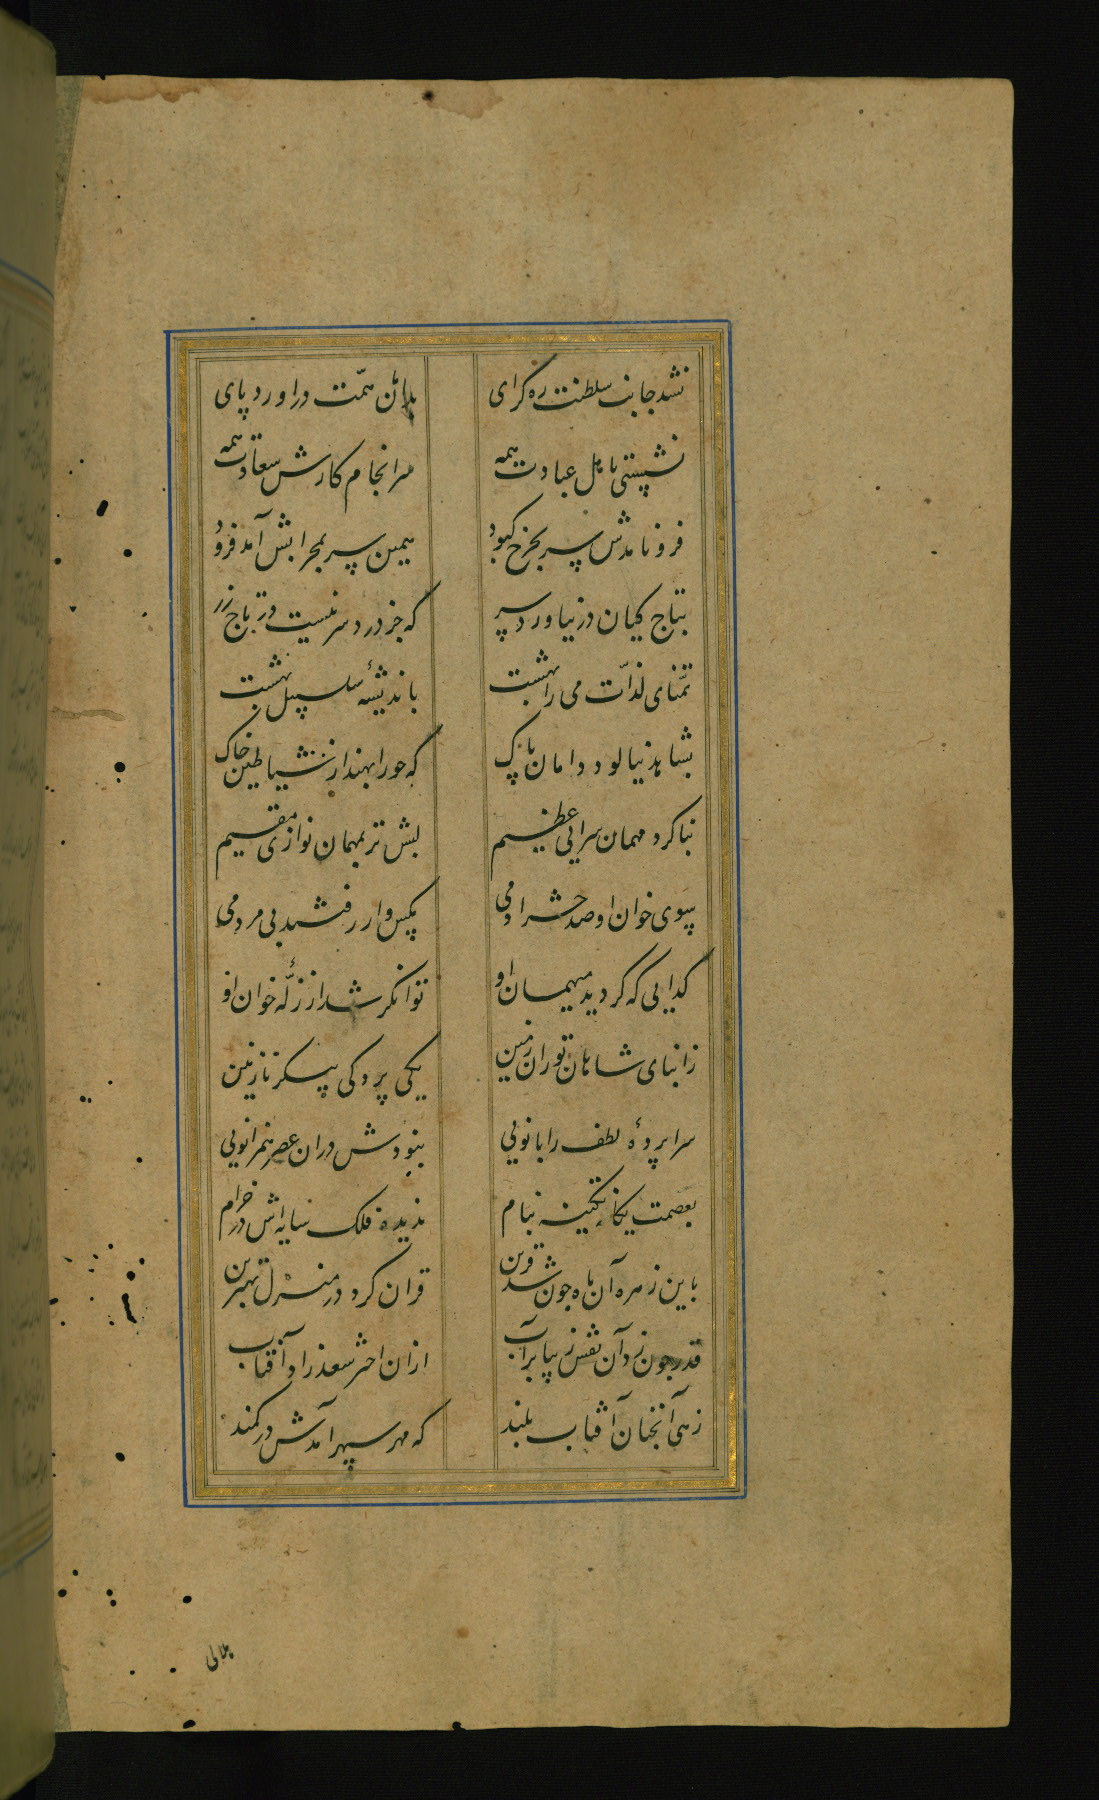 نشد جانب سلطنت ره کرای بدامان همّت دراورد پای
نشستی باهل عبادت همه سرانجام کارش سعادت همه
فرونامدش سر بچرخ کبود همین سر بمحرابش آمد فرود
بتاج کیان در نیاورد سر که جز درد سر نیست در تاج زر
تمنّای لذّات می را بهشت باندیشهٔ سلسبیل بهشت
بشاهد نیالود دامان پاک که حورا بهند از شیاطین خاک
بنا کرد مهمان سرایی عظیم بش تر بمهمان نوازی مقیم
بسوی خوان او صد هزار ادمی مکس وار رفتند بی مردمی
کدایی که کردید میهمان او توانکر شد از زلّهٔ خوان او
زابنای شاهان توران زمین یکی پردکی پیکر نازنین
سراپردهٔ لطف را بانویی نبودش دران عصر همزانویی
بعصمت یکانه تکینه بنام ندیده فلک سایه اش در خرام
باین زهره آن ماه چون شد قرین قران کرد در منزل بهترین
قدر چون زد آن نقش زیبا بر آب ازان اختر سعد زاد آفتاب
زهی آنچنان آفتاب بلند که مهر سپهر آمدش در کمند